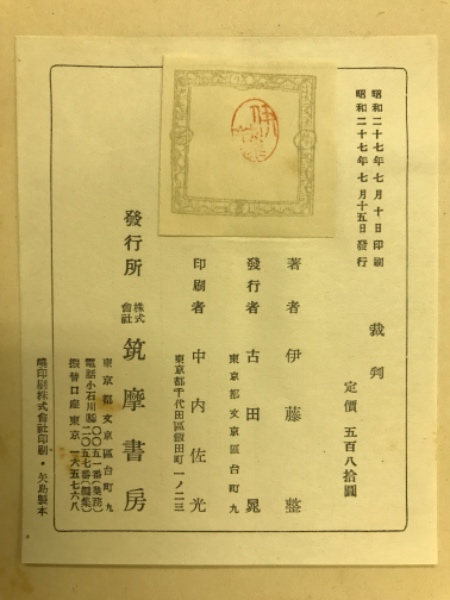 昭和二十七年七月十日印刷
昭和二十七年七月十五日發行
裁判
定價 五百八拾圓
著者 伊藤整
發行者 古田晁
東京都文京區台町九
印刷者 中内佐光
東京都千代田區飯田町一ノ二三
發行所 株式會社 筑摩書房
東京都文京區台町九
電話小石川
振替口座東京 一六五七六八
印刷株式會社印刷・矢島製本